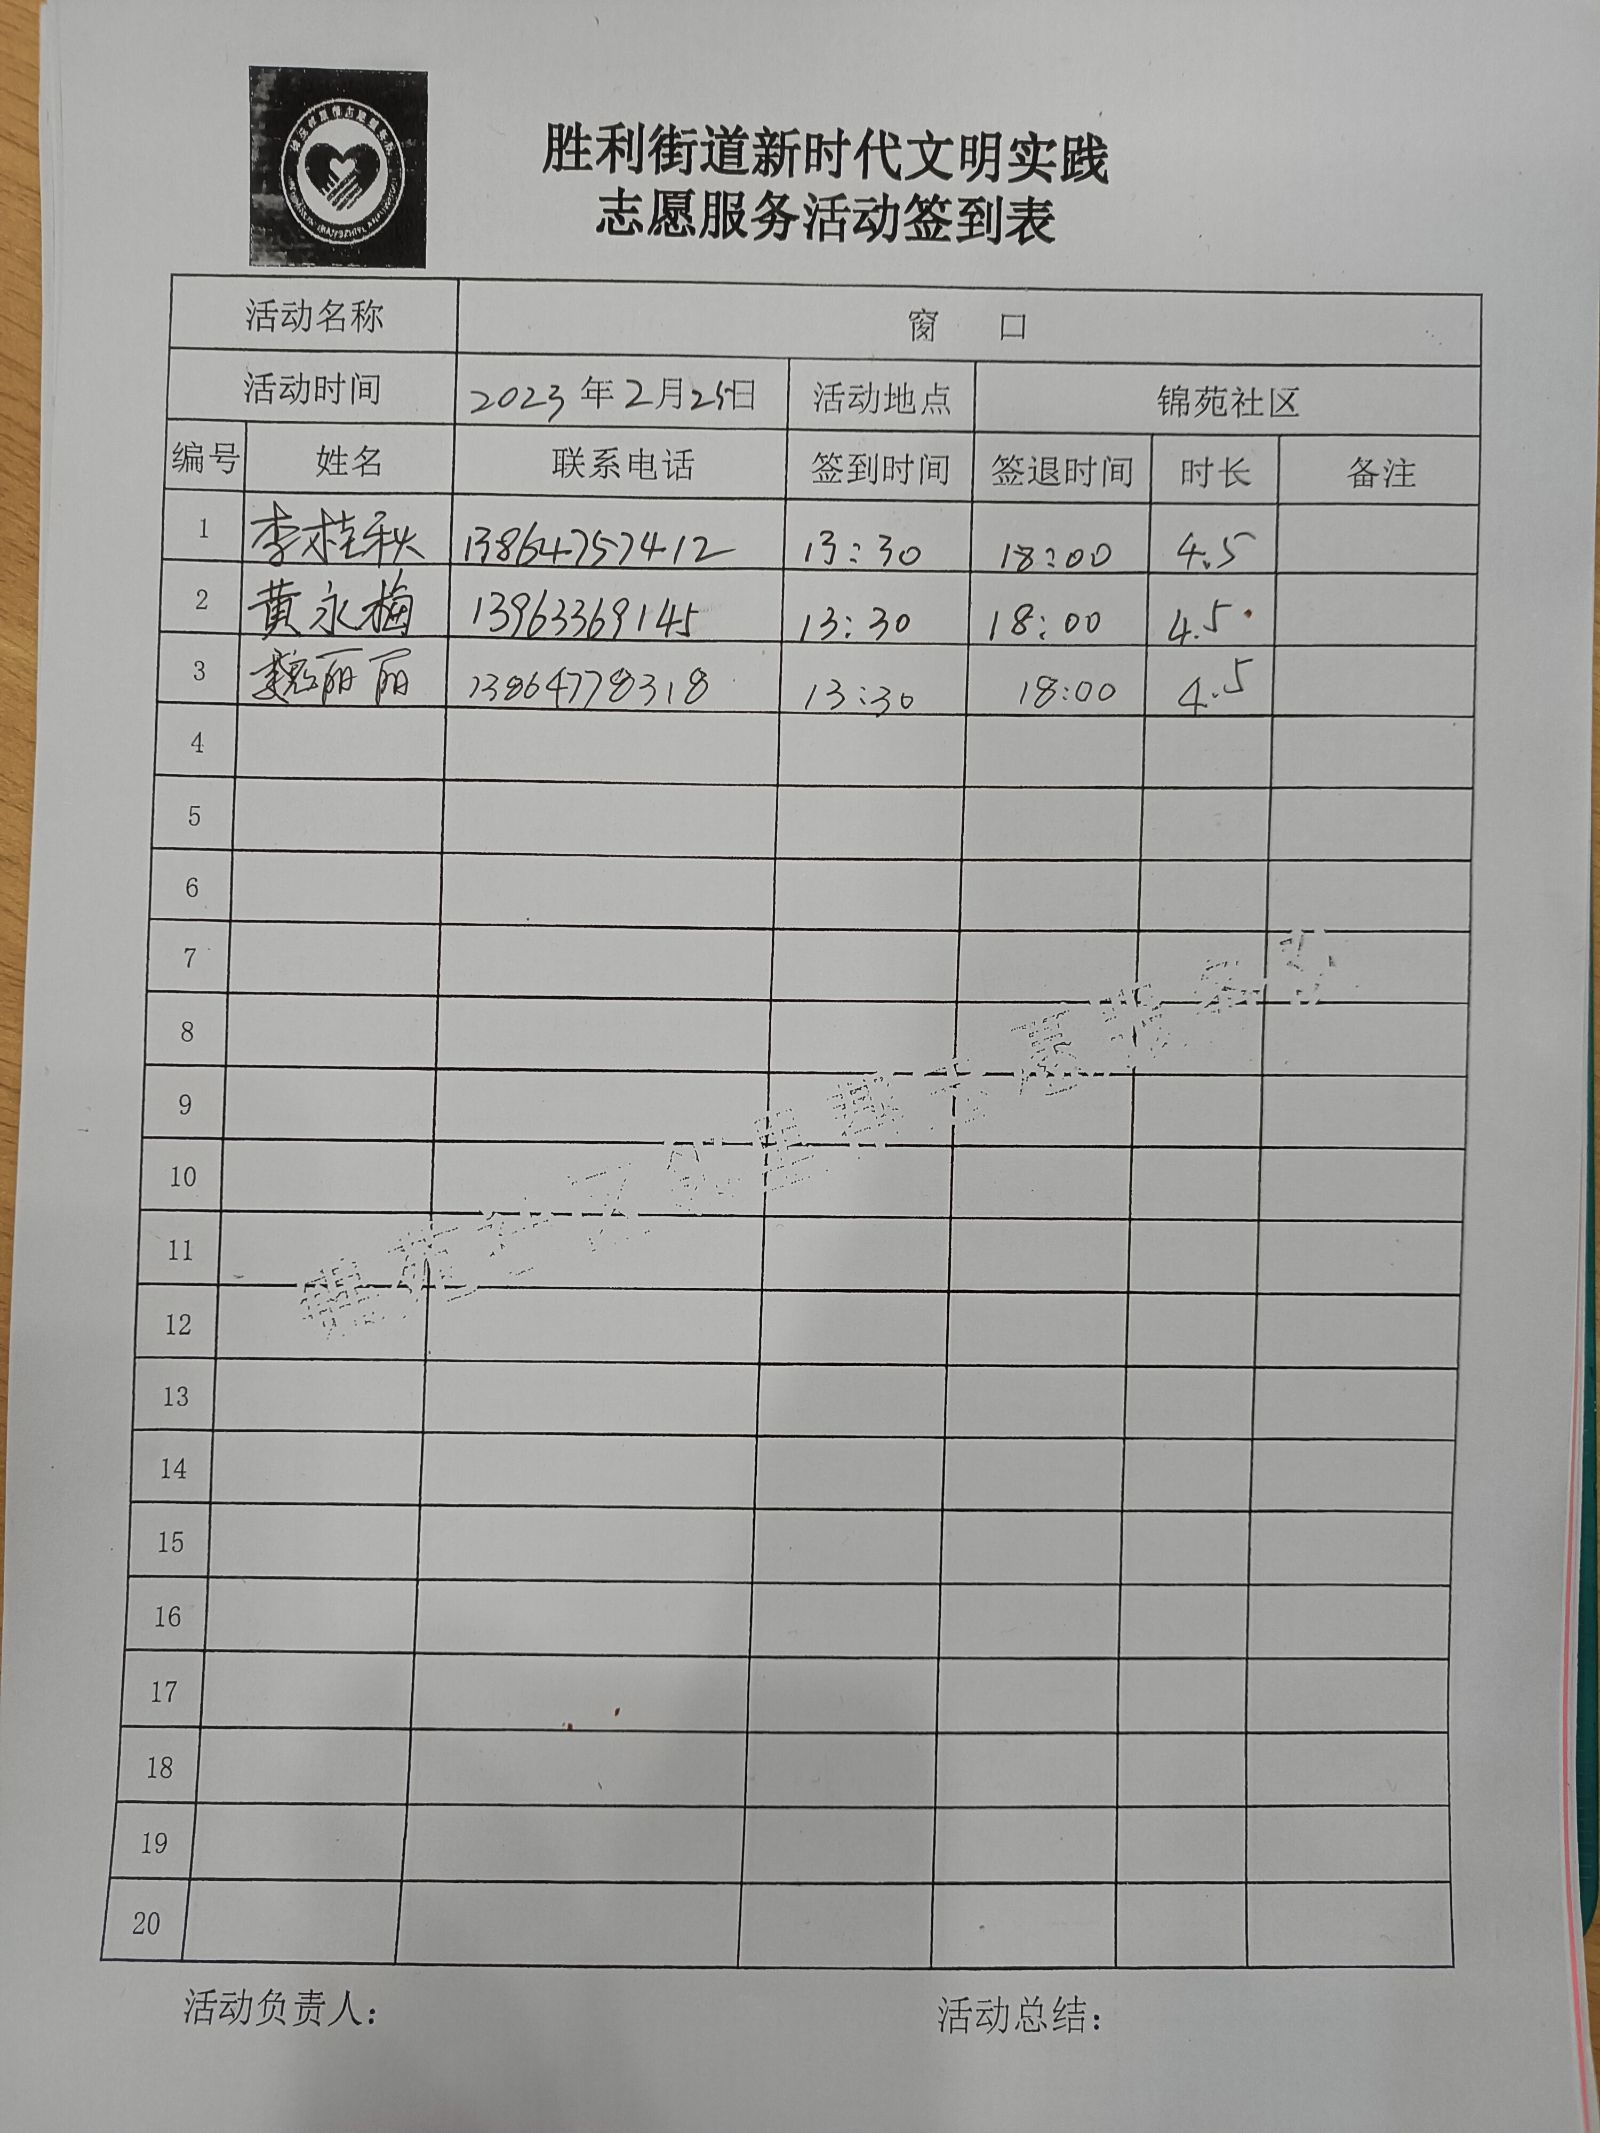 胜利街道新时代文明实践
志愿服务活动签到表
活动名称 窗 口
活动时间 2023年2月25日 活动地点 锦苑社区
编号 姓名 联系电话 签到时间 签退时间 时长 备注
1 李桂秋 13864757412 13:30 18:00 4.5
2 黄永梅 13963369145 13:30 18:00 4.5
3 魏丽丽 13864778318 13:30 18:00 4.5
4
5
6
7
8
9
10
11
12
13
14
15
16
17
18
19
20
活动负责人: 活动总结: